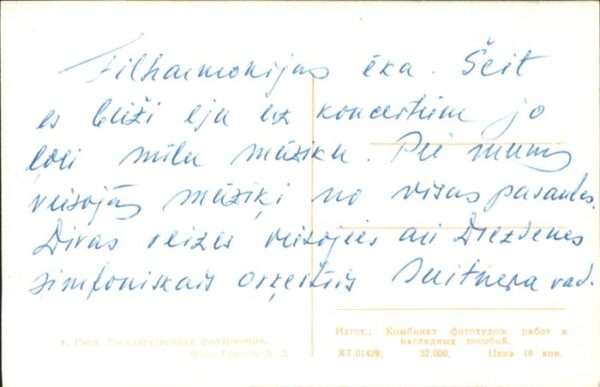 Filharmonijas ēka. Šeit
es bieži eju uz koncertiem jo
ļoti mīlu mūziku. Pie mums
viesojās mūziķi no visas pasaules.
Divas reizes viesojies arī Drezdenes
simfoniskais orķestris Suitnera vad.
г. Рига. Государственная филармония.
Изгот.: Комбинат фотохудож. работ и
наглядных пособий.
ЯТ 01429. 32.000. Цена 10 коп.